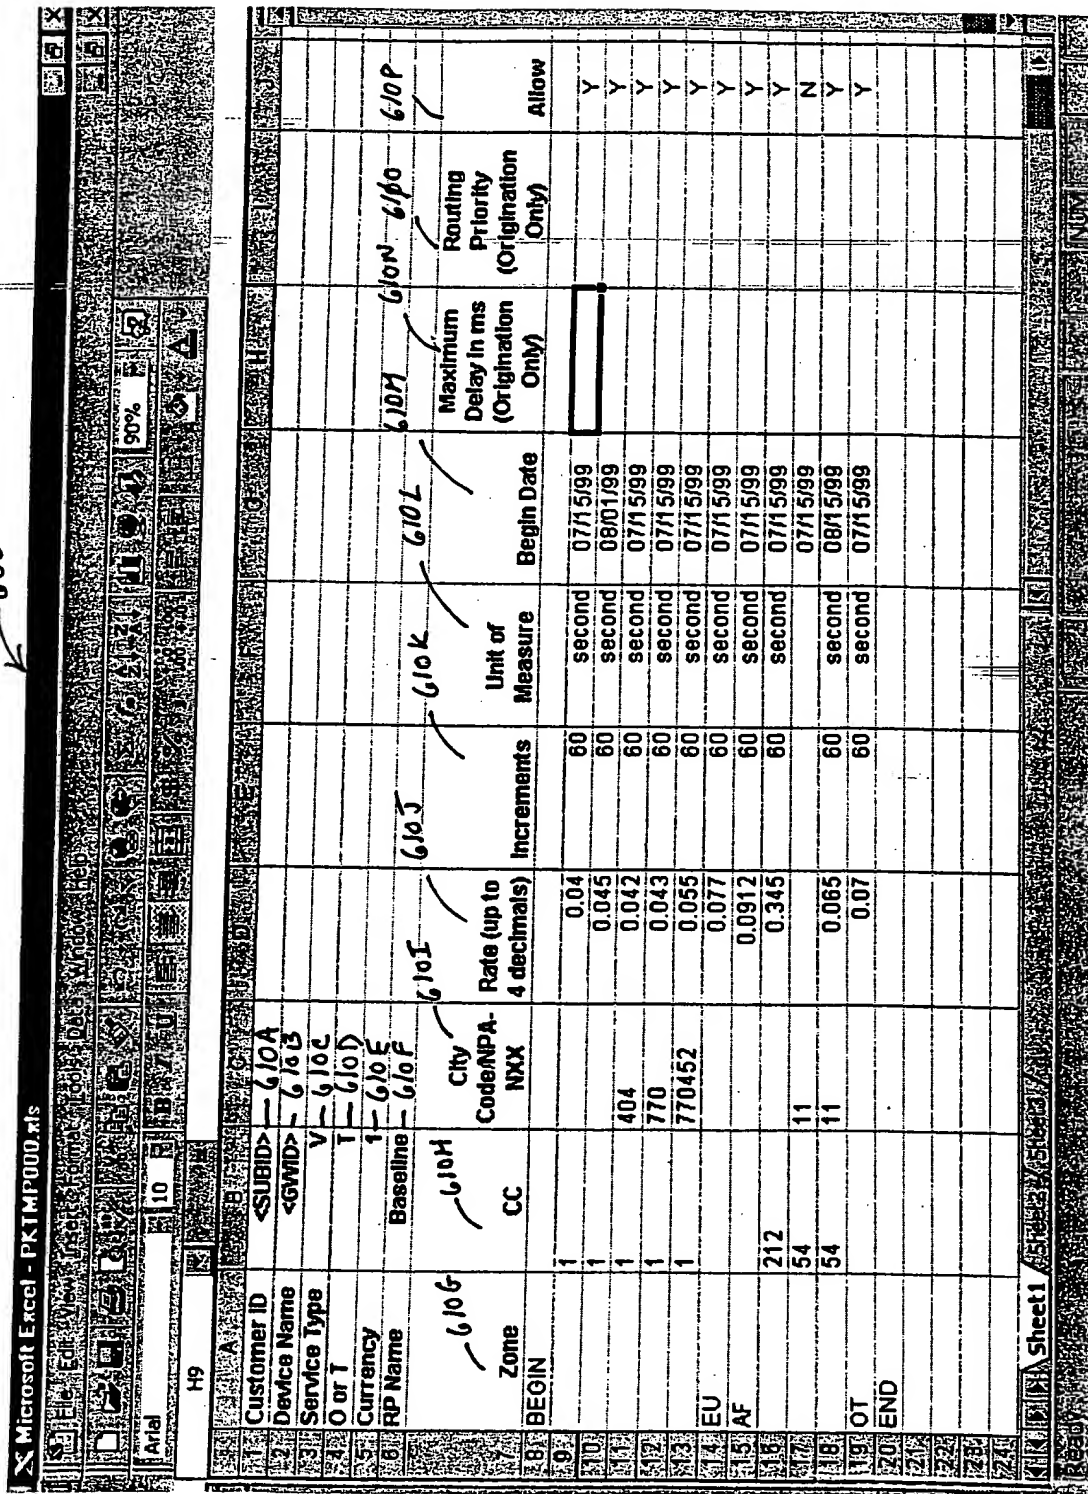 600
Microsoft Excel - PKTMP000.xls
File Edit View Insert Format Tools Data Window Help
Arial 10 B I U 90%
H9
A B C D E F G H
1 Customer ID <SUBID> 610A
2 Device Name <GWID> 610B
3 Service Type V 610C
4 O or T T 610D
5 Currency 1 610E
6 RP Name Baseline 610F
610G 610H 610I 610J 610K 610L 610M 610N 610O 610P
7 Zone CC City Code/NPA-NXX Rate (up to 4 decimals) Increments Unit of Measure Begin Date Maximum Delay in ms (Origination Only) Routing Priority (Origination Only) Allow
8 BEGIN
9 1 0.04 60 second 07/15/99 Y
10 1 0.045 60 second 08/01/99 Y
11 1 404 0.042 60 second 07/15/99 Y
12 1 770 0.043 60 second 07/15/99 Y
13 1 770452 0.055 60 second 07/15/99 Y
14 EU 0.077 60 second 07/15/99 Y
15 AF 0.0912 60 second 07/15/99 Y
16 212 0.345 60 second 07/15/99 Y
17 54 11 07/15/99 N
18 54 11 0.065 60 second 08/15/99 Y
19 OT 0.07 60 second 07/15/99 Y
20 END
21
22
23
24
Sheet1 Sheet2 Sheet3
Ready NUM